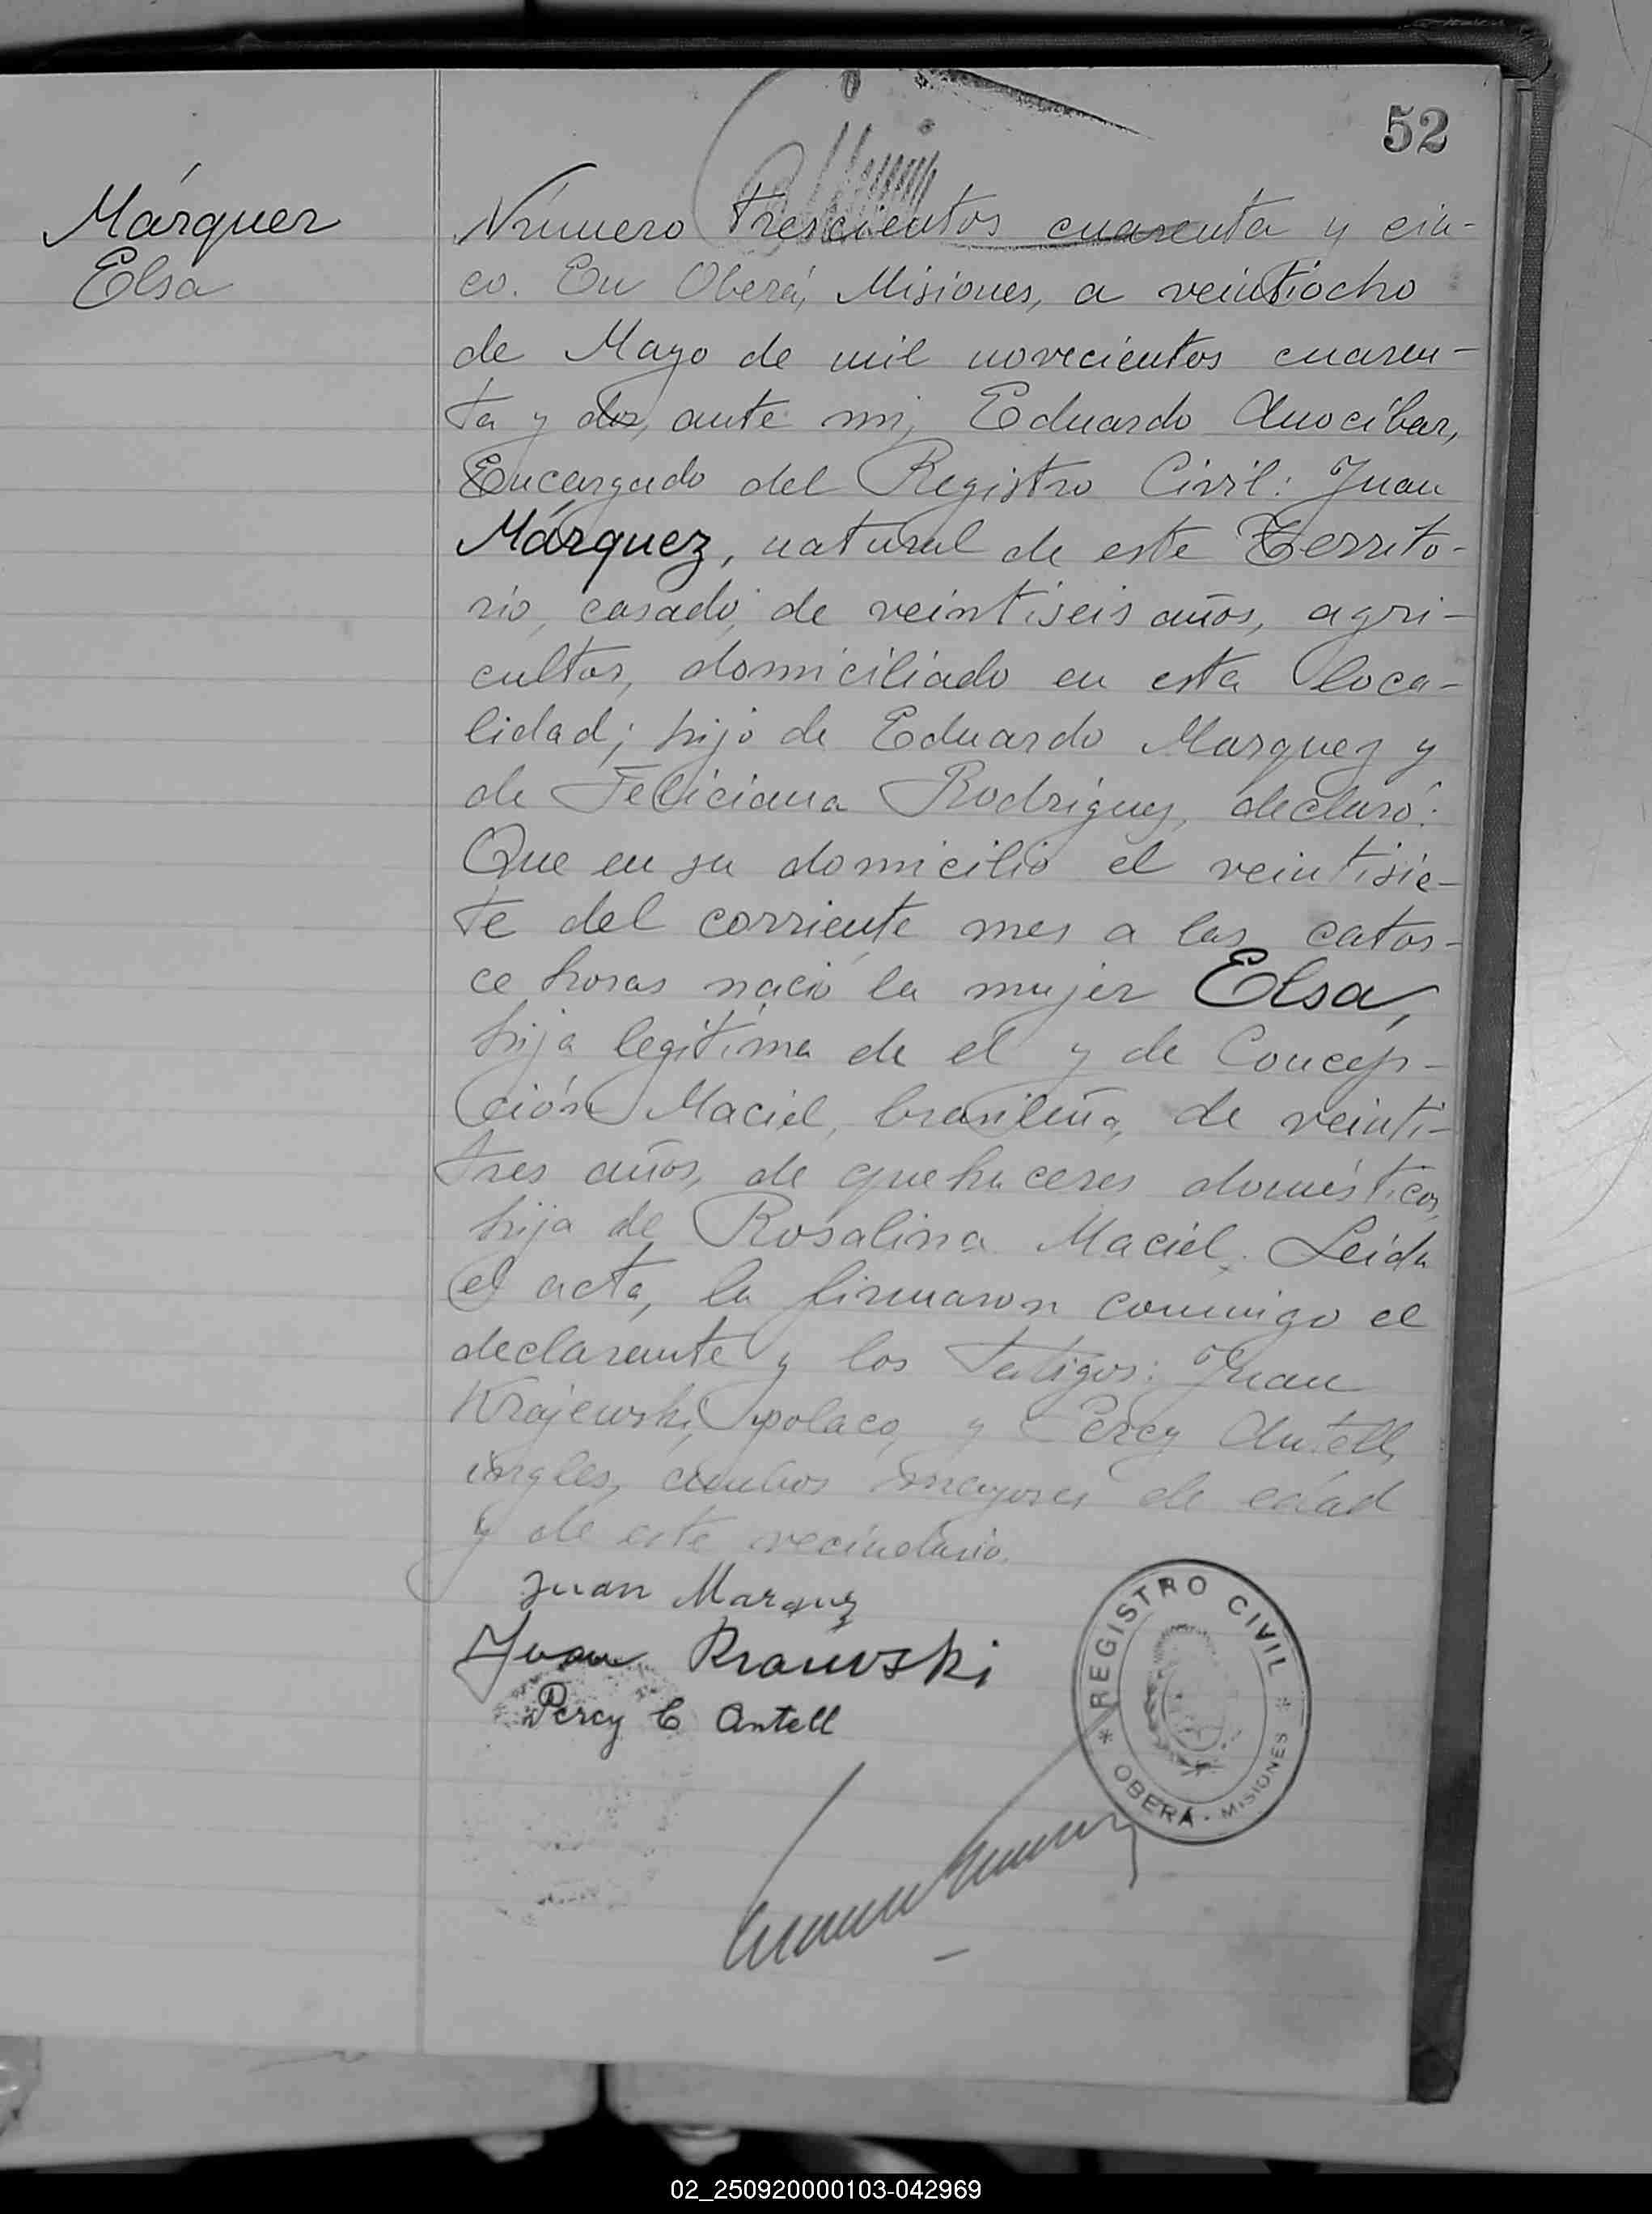 52
Márquez
Elsa
Número trescientos cuarenta y cin-
co. En Oberá, Misiones, a veintiocho
de Mayo de mil novecientos cuaren-
ta y dos, ante mi, Eduardo Anocibar,
Encargado del Registro Civil: Juan
Márquez, natural de este Territo-
rio, casado, de veintiseis años, agri-
cultor, domiciliado en esta loca-
lidad; hijo de Eduardo Marquez y
de Feliciana Rodriguez, declaró:
Que en su domicilio el veintisie-
te del corriente mes a las cator-
ce horas nació la mujer Elsa,
hija legítima de el y de Concep-
ción Maciel, brasileña, de veinti-
tres años, de quehaceres domésticos,
hija de Rosalina Maciel. Leida
el acta, la firmaron conmigo el
declarante y los testigos: Juan
Krajewski, polaco, y Percy Antell,
ingles, ambos mayores de edad
y de este vecindario.
Juan Marquz
Juan
Percy C Antell
* REGISTRO CIVIL *
OBERÁ - MISIONES
02_250920000103-042969